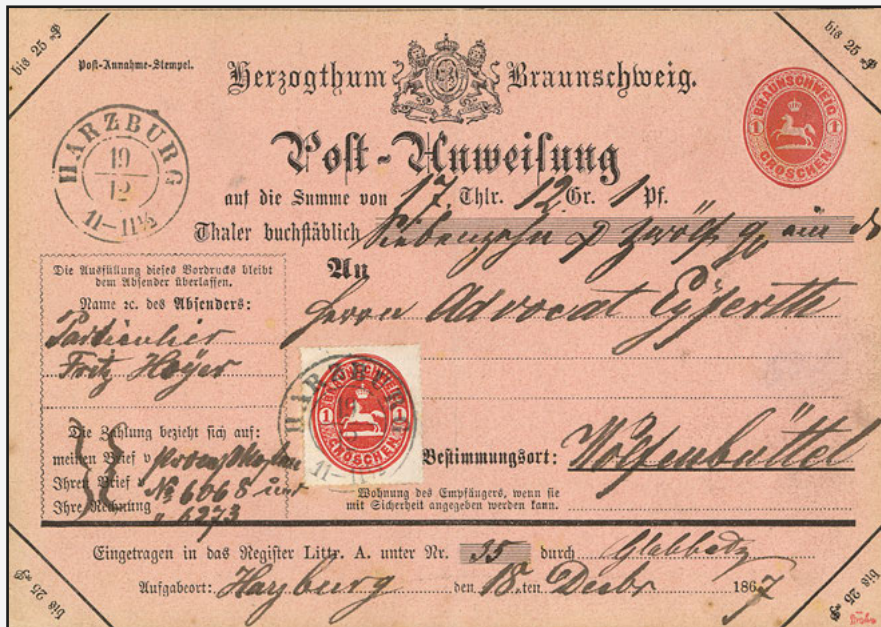 bis 25 ₰
bis 25 ₰
Post-Annahme-Stempel.
Herzogthum Braunschweig.
HARZBURG
19
12
11-11½
BRAUNSCHWEIG
1 1
GROSCHEN
Post-Anweisung
auf die Summe von 17, Thlr. 12, Gr. 1 Pf.
Thaler buchstäblich Siebenzehn zwölf
An
Herrn Advocat Eyferth
Die Ausfüllung dieses Vordrucks bleibt
dem Absender überlassen.
Name ꝛc. des Absenders:
Particulier
Fritz Hoyer
BRAUNSCHWEIG
1 1
GROSCHEN
HARZBURG
Die Zahlung bezieht sich auf:
meinen Brief v
Ihren Brief v № 6068 und
Ihre Rechnung " 6273
Bestimmungsort: Wolfenbüttel
Wohnung des Empfängers, wenn sie
mit Sicherheit angegeben werden kann.
Eingetragen in das Register Littr. A. unter Nr. 35 durch
Aufgabeort: Harzburg den 18.ten Decbr 1867
bis 25 ₰
bis 25 ₰